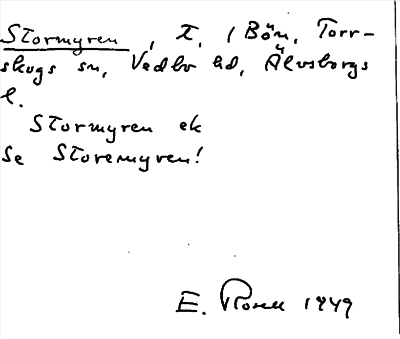 Stormyren, t. 1 Bön, Torr-
skogs sn, Vedbo hd, Älvsborgs
l.
Stormyren ek
Se Storemyren!
E. Rosell 1949